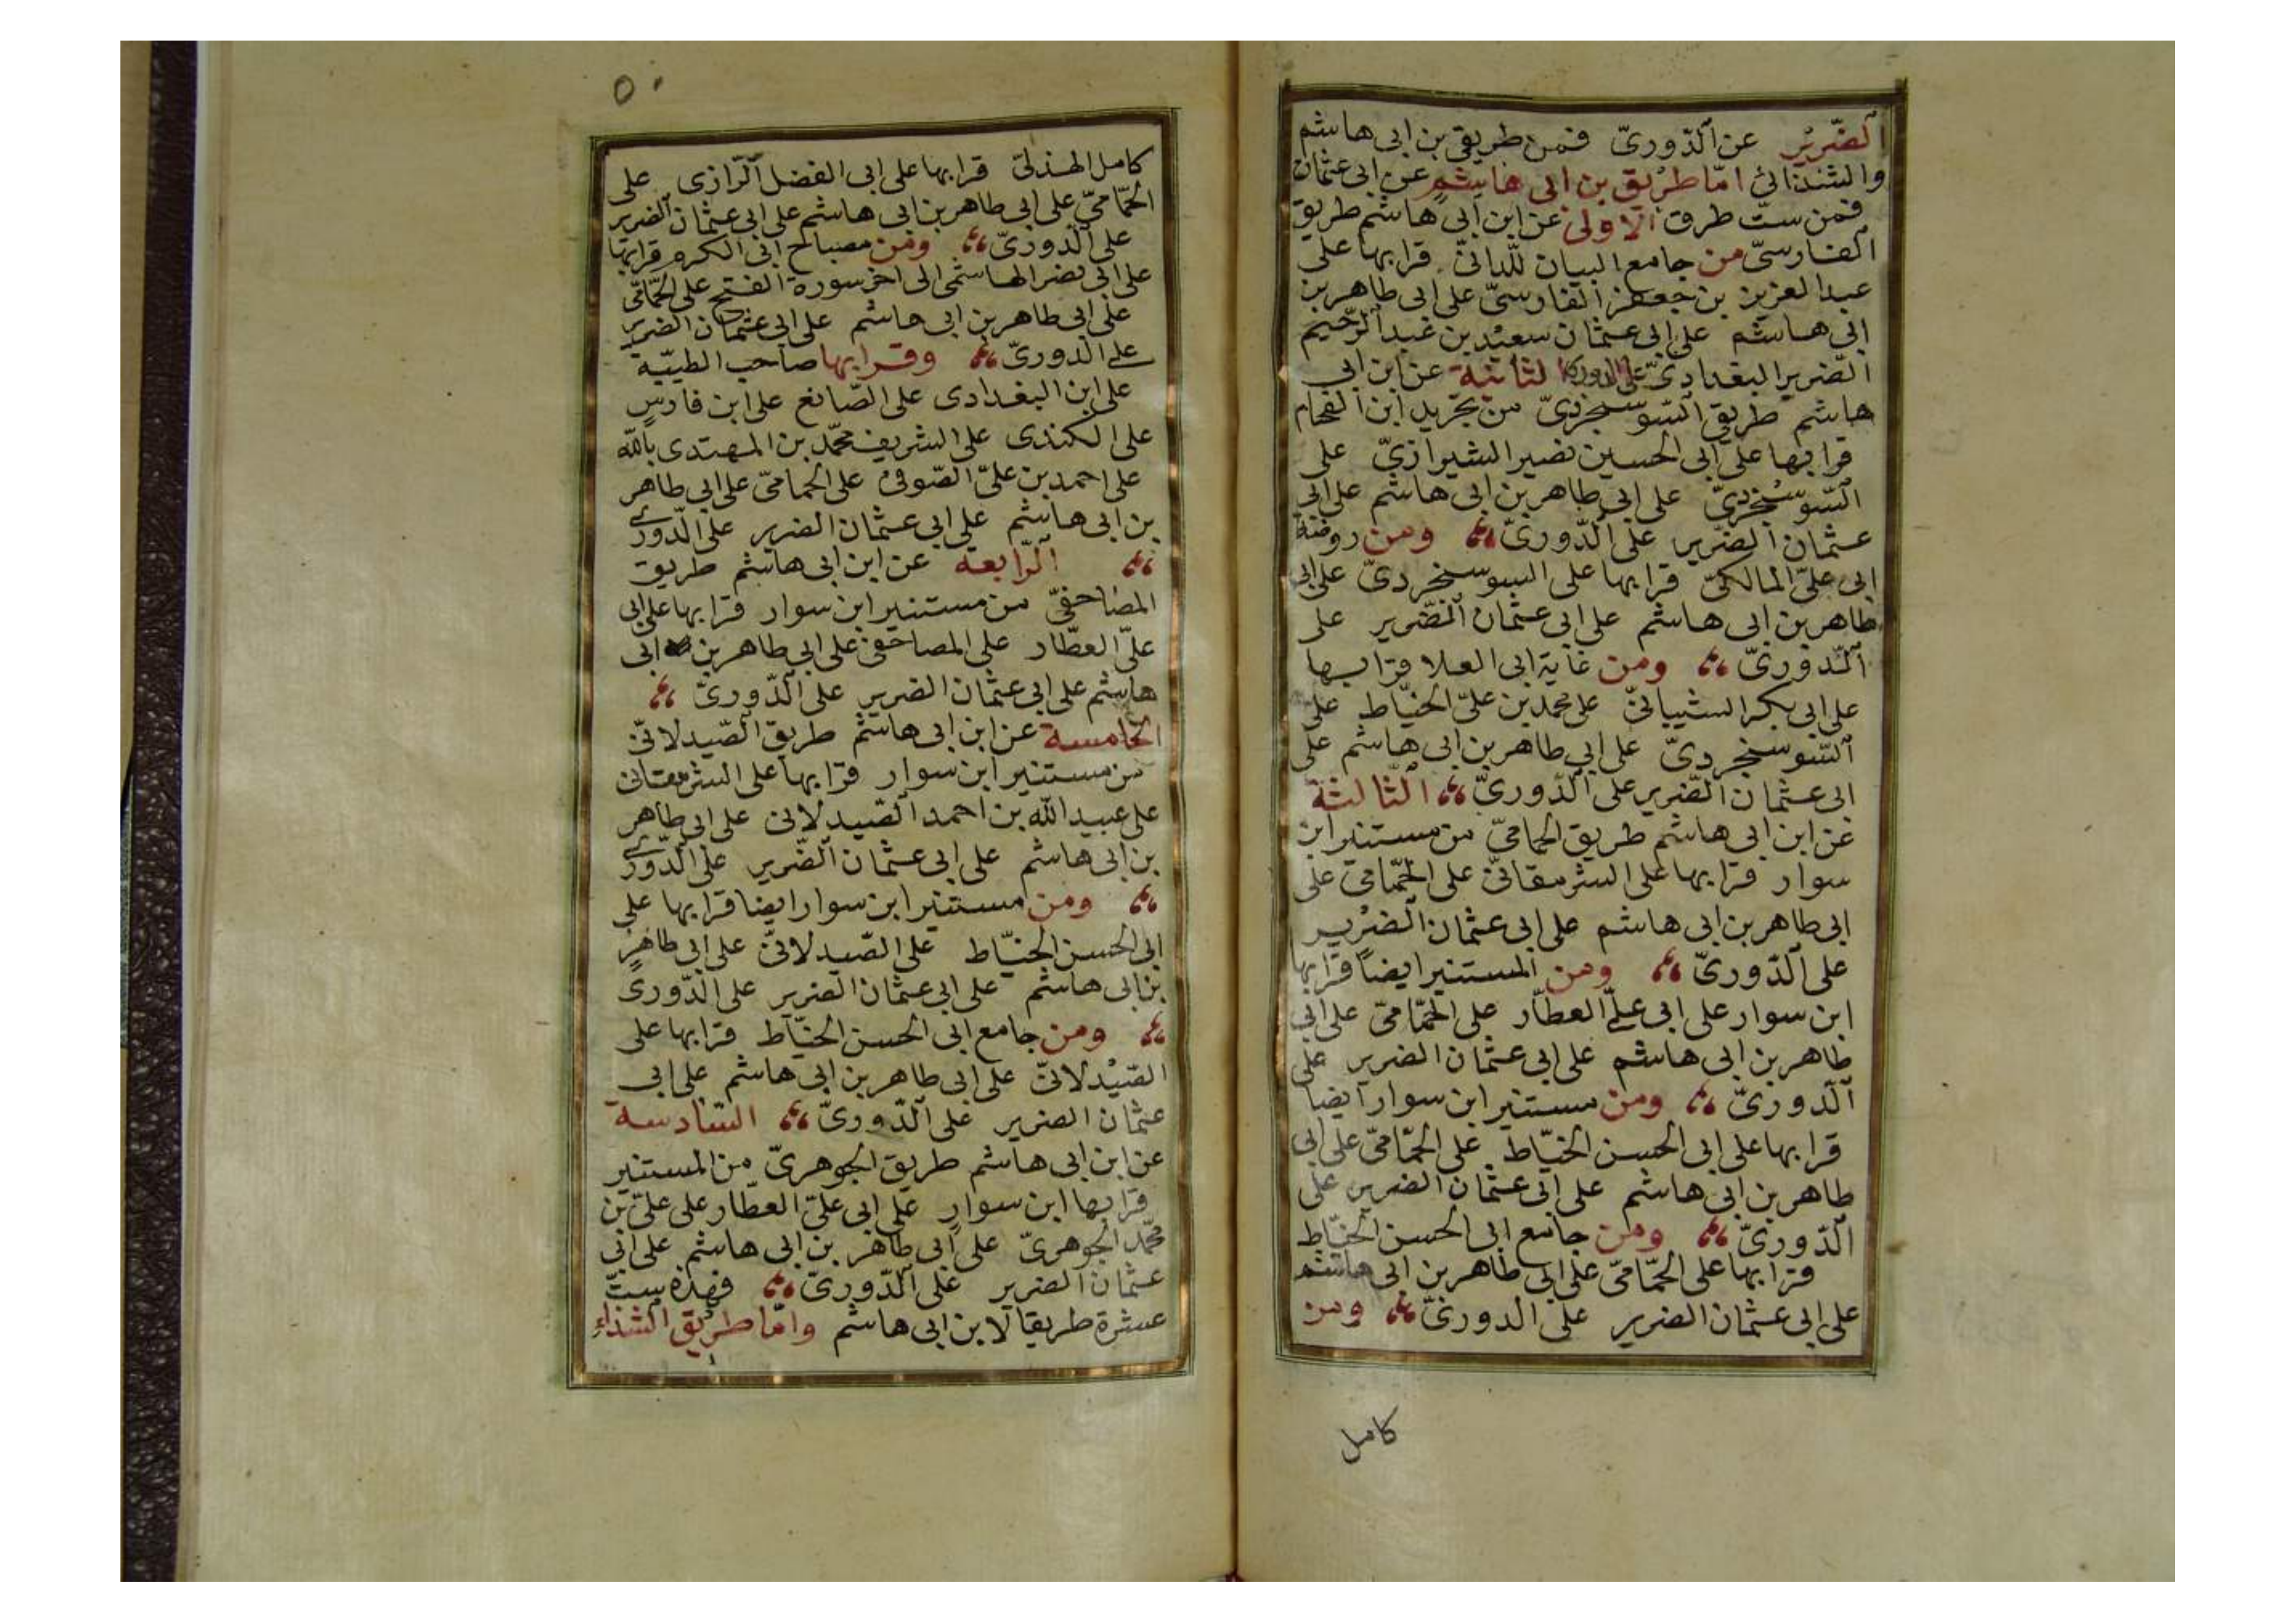 الضّرير عن الدّوريّ فمن طريقي بن ابى هاشم
والشذائى امّا طريق بن ابى هاشم عن ابى عثمان
فمن ستّ طرق الاولى عن ابن ابى هاشم طريق
الفارسىّ من جامع البيان للدانىّ قرا بها على
عبد العزيز بن جعفر الفارسىّ على ابى طاهر بن
ابى هاشم على ابى عثمان سعيد بن عبد الرّحيم
الضرير البغدادىّ على الدورى الثانية عن ابن ابى
هاشم طريق السّوسنجردىّ من تجريد ابن الفحام
قرا بها على ابى الحسين نصير الشيرازىّ على
السّوسنجردىّ على ابى طاهر بن ابى هاشم على ابى
عثمان الضرير على الدّورىّ ومن روضة
ابى علىّ المالكىّ قرا بها على السوسنجردىّ على ابى
طاهر بن ابى هاشم على ابى عثمان الضّرير على
الدّورىّ ومن غاية ابى العلا قرا بها
على ابى بكر الشيبانىّ على محمد بن علىّ الخيّاط على
السّوسنجردىّ على ابى طاهر بن ابى هاشم على
ابى عثمان الضّرير على الدّورىّ الثالثة
عن ابن ابى هاشم طريق الحمامىّ من مستنير ابن
سوار قرا بها على الشرمقانىّ على الحمّامىّ على
ابى طاهر بن ابى هاشم على ابى عثمان الضرير
على الدّورىّ ومن المستنير ايضاً قرا بها
ابن سوار على ابى علىّ العطّار على الحمّامىّ على ابى
طاهر بن ابى هاشم على ابى عثمان الضرير على
الدّورىّ ومن مستنير ابن سوار ايضا
قرا بها على ابى الحسن الخيّاط على الحمّامىّ على ابى
طاهر بن ابى هاشم على ابى عثمان الضرير على
الدّورىّ ومن جامع ابى الحسن الخيّاط
قرا بها على الحمّامىّ على ابى طاهر بن ابى هاشم
على ابى عثمان الضرير على الدورىّ ومن
كامل
٥٠
كامل الهذلىّ قرا بها على ابى الفضل الرّازى على
الحمّامىّ على ابى طاهر بن ابى هاشم على ابى عثمان الضرير
على الدّورىّ ومن مصباح ابى الكرم قرا بها
على ابى نصر الهاشمى الى اخر سورة الفتح على الحمّامّى
على ابى طاهر بن ابى هاشم على ابى عثمان الضرير
على الدورىّ وقرا بها صاحب الطيّبة
على ابن البغدادى على الصّائغ على ابن فارس
على الكندى على الشريف محمّد بن المهتدى بالله
على احمد بن علىّ الصّوفى على الحمامىّ على ابى طاهر
بن ابى هاشم على ابى عثمان الضرير على الدّورى
الرّابعه عن ابن ابى هاشم طريق
المصاحفىّ من مستنير ابن سوار قرا بها على ابى
علىّ العطّار على المصاحفى على ابى طاهر بن ابى
هاشم على ابى عثمان الضرير على الدّورىّ
الخامسة عن ابن ابى هاشم طريق الصّيدلانىّ
من مستنير ابن سوار قرا بها على الشرمقانى
على عبيد الله بن احمد الصّيدلانى على ابى طاهر
بن ابى هاشم على ابى عثمان الضّرير على الدّورى
ومن مستنير ابن سوار ايضا قرا بها على
ابى الحسن الخيّاط على الصّيدلانىّ على ابى طاهر
بن ابى هاشم على ابى عثمان الضرير على الدّورىّ
ومن جامع ابى الحسن الخيّاط قرا بها على
الصّيدلانىّ على ابى طاهر بن ابى هاشم على ابى
عثمان الضرير على الدّورىّ السّادسة
عن ابن ابى هاشم طريق الجوهرىّ من المستنير
قرا بها ابن سوار على ابى علىّ العطّار على علىّ بن
محمّد الجوهرىّ على ابى طاهر بن ابى هاشم على ابى
عثمان الضرير على الدّورىّ فهذه ستّ
عشرة طريقا لابن ابى هاشم وامّا طريق الشذاء